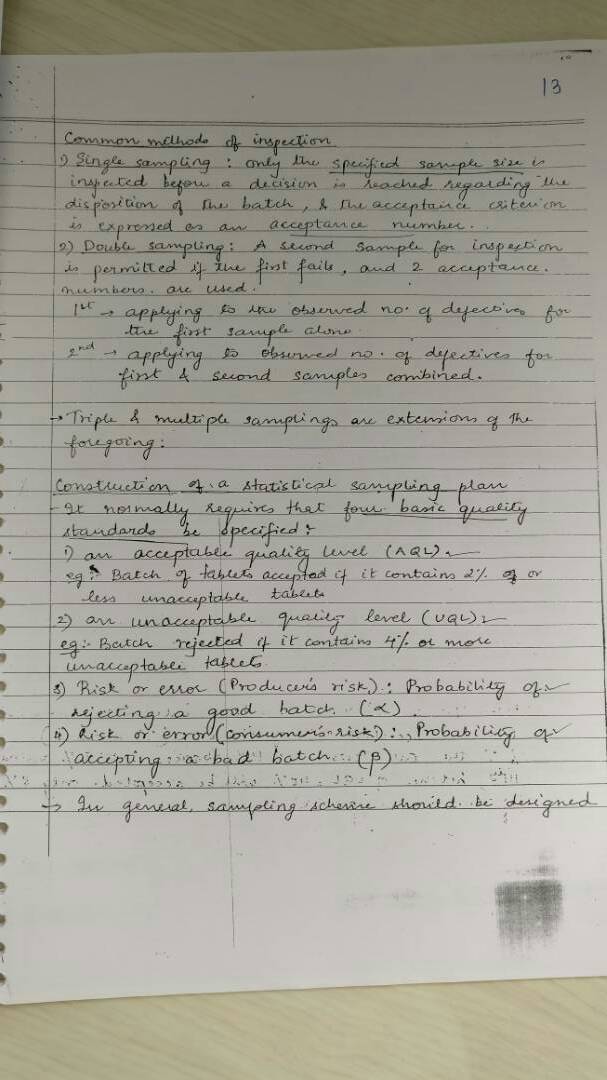 13
Common methods of inspection
1) Single sampling : only the specified sample size is
inspected before a decision is reached regarding the
disposition of the batch, & the acceptance criterion
is expressed as an acceptance number.
2) Double sampling : A second sample for inspection
is permitted if the first fails, and 2 acceptance
numbers are used.
1st → applying to the observed no. of defectives for
the first sample alone
2nd → applying to observed no. of defectives for
first & second samples combined.
→ Triple & multiple samplings are extensions of the
foregoing :
Construction of a statistical sampling plan
- It normally requires that four basic quality
standards be specified :
1) an acceptable quality level (AQL)
eg :- Batch of tablets accepted if it contains 2% or
less unacceptable tablets
2) an unacceptable quality level (UQL)
eg :- Batch rejected if it contains 4% or more
unacceptable tablets
3) Risk or error (Producer's risk) : Probability of
rejecting a good batch (α)
4) Risk or error (consumer's risk) : Probability of
accepting a bad batch (β)
→ In general, sampling scheme should be designed